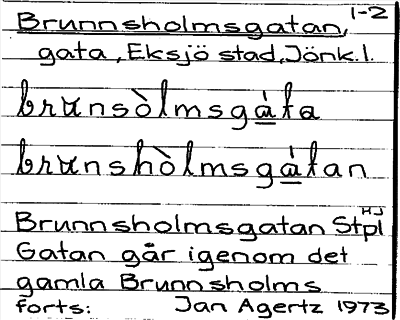 1-2
Brunnsholmsgatan,
gata, Eksjö stad, Jönk.l.
brunsòlmsgàta
brunshòlmsgàtan
HJ
Brunnsholmsgatan Stpl
Gatan går igenom det
gamla Brunnsholms
forts: Jan Agertz 1973